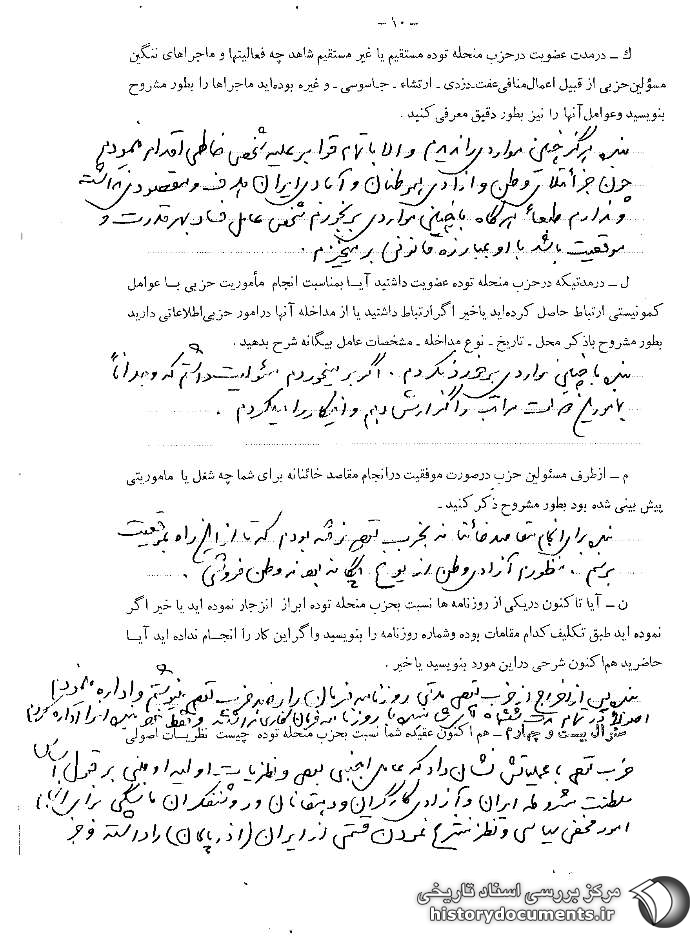 - ۱۰ -
ك ـ درمدت عضویت درحزب منحله توده مستقیم یا غیر مستقیم شاهد چه فعالیتها و ماجراهای ننگین
مسؤلین حزبی از قبیل اعمال منافی عفت ـ دزدی ـ ارتشاء ـ جاسوسی ـ و غیره بوده‌اید ماجراها را بطور مشروح
بنویسید وعوامل آنها را نیز بطور دقیق معرفی کنید .
بنده هرگز چنین مواردی را ندیدم و الا با تمام قوا بر علیه شخص خاطی اقدام مینمودم
چون جز اعتلای وطن و آزادی هموطنان و آبادی ایران هدف و مقصودی نداشته
و ندارم طبعاً هرگاه با چنین مواردی بر بخورم شخص عامل فساد بهر قدرت و
موقعیت باشد با او بمبارزه قانونی بر میخیزم .
ل ـ درمدتیکه درحزب منحله توده عضویت داشتید آیـا بمناسبت انجام مأموریت حزبی بـا عوامل
کمونیستی ارتباط حاصل کرده‌اید یاخیر اگر ارتباط داشتید یا از مداخله آنها درامور حزبی اطلاعاتی دارید
بطور مشروح باذکر محل ـ تاریخ ـ نوع مداخله ـ مشخصات عامل بیگانه شرح بدهید .
بنده با چنین مواردی برخورد نکردم . اگر بر میخوردم مسئولیت داشتم که وجداناً
مراتب را گزارش دهم و اینکار را میکردم .
م ـ ازطرف مسئولین حزب درصورت موفقیت درانجام مقاصد خائنانه برای شما چه شغل یا ماموریتی
پیش بینی شده بود بطور مشروح ذکر کنید ـ
بنده برای انجام مقاصد خائنانه بحزب توده نرفته بودم که تا از این راه بموقعیت
برسم . منظورم آزادی وطن از یوغ بیگانه بود نه وطن فروشی .
ن ـ آیا تاکنون دریکی از روزنامه ها نسبت بحزب منحله توده ابراز انزجار نموده اید یا خیر اگر
نموده اید طبق تکلیف کدام مقامات بوده وشماره روزنامه را بنویسید واگر این کار را انجـام نداده اید آیـا
حاضرید هم اکنون شرحی دراین مورد بنویسید یا خیر .
بنده پس از اخراج از حزب توده مدتی روزنامه را ضد حزب توده مینوشتم و اداره مینمودم
سؤال بیست و چهارم ـ هم اکنون عقیده شما نسبت بحزب منحله توده چیست نظریـات اصولی
حزب توده با عملیاتش نشان داد که عامل اجنبی بوده و نظریات اولیه او مبنی بر قبول
سلطنت مشروطه ایران و آزادی کارگران و دهقانان و روشنفکران ماسکی برای
امور مخفی سیاسی و نظر منتزع نمودن قسمتی از ایران (آذربایجان) را داشته و جز
مرکز بررسی اسناد تاریخی
historydocuments.ir